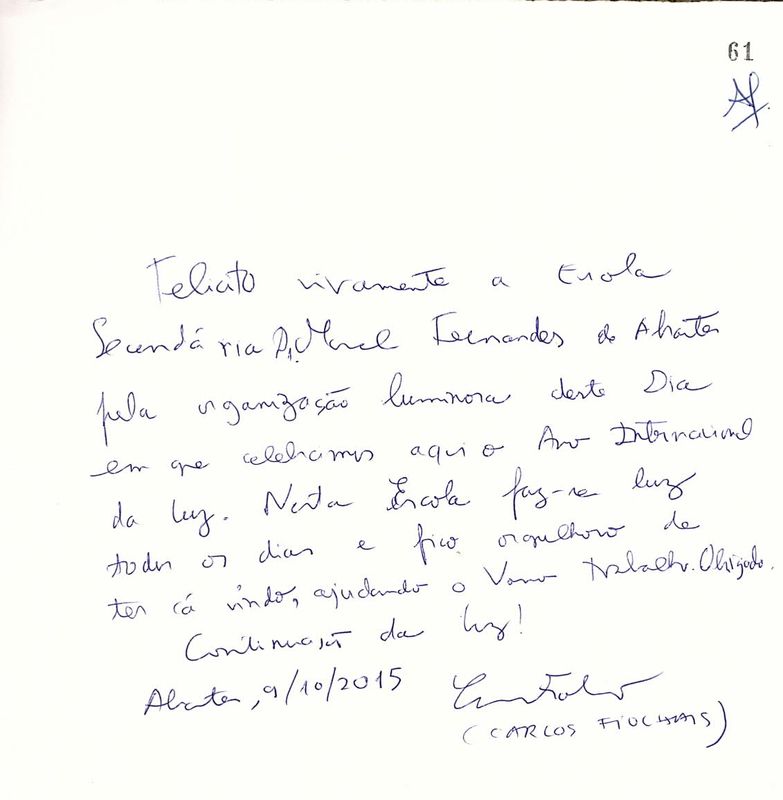 61
Felicito vivamente a Escola
Secundária Dr. Manuel Fernandes de Abrantes
pela organização luminosa deste Dia
em que celebramos aqui o Ano Internacional
da luz. Nesta Escola faz-se luz
todos os dias e fico orgulhoso de
ter cá vindo, ajudando o Vosso trabalho. Obrigado.
Continuação da luz!
Abrantes, 9/10/2015
(CARLOS FIOLHAIS)